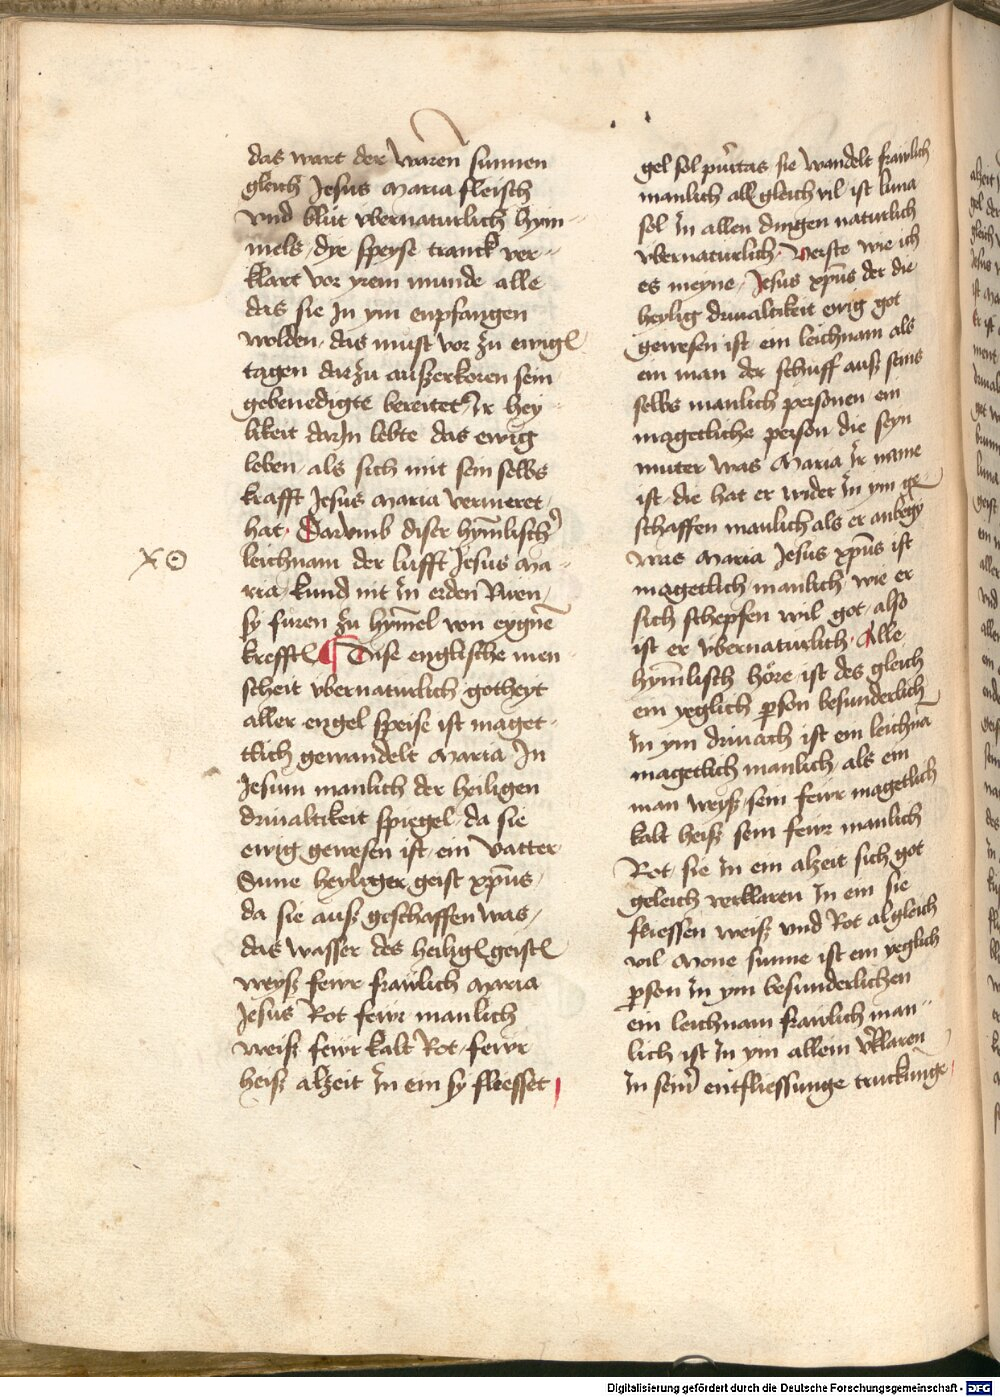 das wart der waren sunnen
gleich Jesus Maria fleisch
vnd blut vbernaturlich hym
mels, dye speyse tranck ver
klart vor yrem munde alle
das sie In ym enpfangen
wolden, das must vor zu ewigen
tagen darzu außerkoren sein
gebenedigte bereitet Ir hey
likeit darIn lebte das ewig
leben, als sich mit sein selbs
krafft Jesus Maria vermeret
hat. Darvmb diser hymlischer
XO
leichnam der lufft Jesus Ma
ria, kund nit In erden Ruen,
sy furen zu hymel von eygnen
krefften Dise englische men
scheit vbernaturlich gotheyt
aller engel speise ist maget
tlich gewandelt Maria In
Jesum manlich der heiligen
driualtikeit spiegel, da sie
ewig gewesen ist, ein vatter
Sune heyliger geist xp̄us,
da sie auß geschaffen was,
das wasser des heiligen geistes
weyß fewr frawlich Maria
Jesus Rot fewr manlich
weiß fewr kalt Rot, fewr
heiß alzeit In ein sy fleesset
gel sol puritas sie wandelt frawlich
manlich all gleich vil ist luna
sol In allen dingen naturlich
vbernaturlich. Verste wie ich
es meyne, Jesus xp̄us der die
heylig driualtikeit ewig got
gewesen ist ein leichnam als
ein man der schuff auß seins
selbs manlich personen ein
magetliche person die seyn
muter was Maria Ir name
ist, die hat er wider In ym ge
schaffen manlich als er anbegy
was Maria Jesus xp̄us ist
magetlich manlich, wie er
sich schepfen wil got, also
ist er vbernaturlich. Alle
hym̄lisch höre ist des gleich
ein yeglich person besunderlich
In ym driuach ist ein leichnā
magetlich manlich, als ein
man weyß, sein fewr magetlich
kalt heiß sein fewr manlich
Rot, sie In ein alzeit sich got
geleich verklaren In ein sie
fliessen weiß vnd Rot algleich
vil Mone sunne ist ein yeglich
person In ym besunderlichen
ein leichnam frawlich man
lich ist In ym allein verklaren
In seiner entfliessunge truckunge